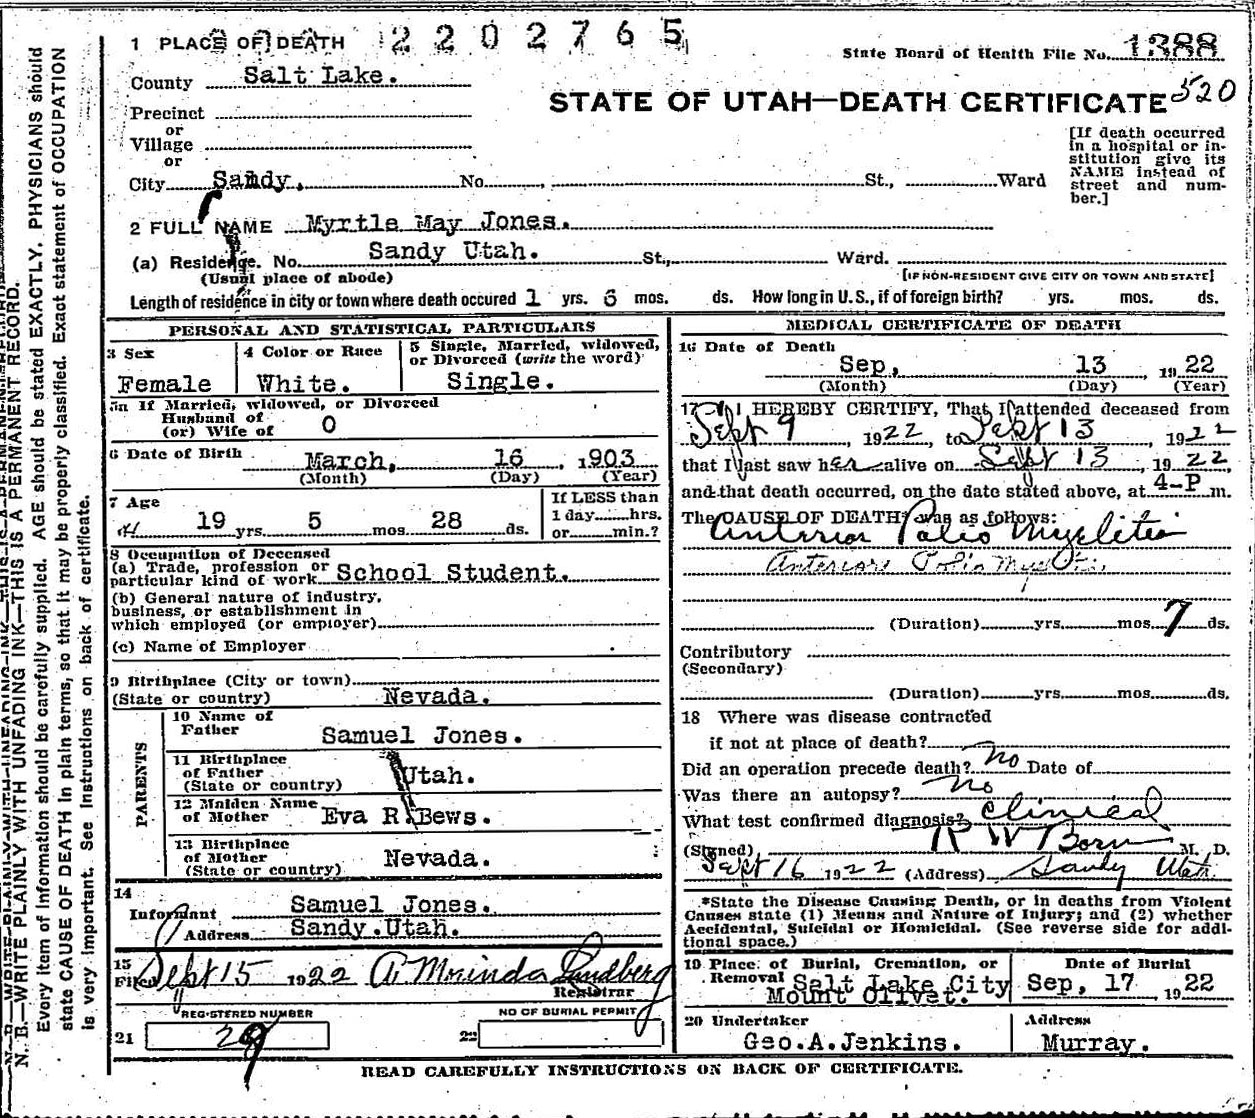 1 PLACE OF DEATH 2202765
State Board of Health File No. 1388
County Salt Lake.
520
STATE OF UTAH—DEATH CERTIFICATE
Precinct
or
Village
or
City Sandy, No. , St., Ward
[If death occurred in a hospital or in-
stitution give its
NAME instead of
street and num-
ber.]
2 FULL NAME Myrtle May Jones.
(a) Residence. No. Sandy Utah. St., Ward.
(Usual place of abode) [IF NON-RESIDENT GIVE CITY OR TOWN AND STATE]
Length of residence in city or town where death occured 1 yrs. 6 mos. ds. How long in U.S., if of foreign birth? yrs. mos. ds.
PERSONAL AND STATISTICAL PARTICULARS
3 Sex
Female
4 Color or Race
White.
5 Single, Married, widowed,
or Divorced (write the word)
Single.
5a If Married, widowed, or Divorced
Husband of
(or) Wife of O
6 Date of Birth March, 16 , 1903
(Month) (Day) (Year)
7 Age
19 yrs. 5 mos. 28 ds.
If LESS than
1 day......hrs.
or......min.?
8 Occupation of Deceased
(a) Trade, profession or
particular kind of work School Student.
(b) General nature of industry,
business, or establishment in
which employed (or employer)
(c) Name of Employer
9 Birthplace (City or town)
(State or country) Nevada.
PARENTS
10 Name of
Father Samuel Jones.
11 Birthplace
of Father
(State or country) Utah.
12 Maiden Name
of Mother Eva R. Bews.
13 Birthplace
of Mother
(State or country) Nevada.
14
Informant Samuel Jones.
Address Sandy.Utah.
15
Filed Sept 15 1922 A. Morinda Sandberg
Registrar
REGISTERED NUMBER
21 29
NO OF BURIAL PERMIT
22
MEDICAL CERTIFICATE OF DEATH
16 Date of Death
Sep, 13 , 1922
(Month) (Day) (Year)
17 I HEREBY CERTIFY, That I attended deceased from
Sept 9 , 1922, to Sept 13 1922
that I last saw her alive on Sept 13 , 1922
and that death occurred, on the date stated above, at 4-P m.
The CAUSE OF DEATH* was as follows:
Anterior Polio Myelitis
Anterior Polio Myelitis
(Duration) yrs. mos. 7 ds.
Contributory
(Secondary)
(Duration) yrs. mos. ds.
18 Where was disease contracted
if not at place of death?
Did an operation precede death? No Date of
Was there an autopsy? No
What test confirmed diagnosis? Clinical
(Signed) R W Born M. D.
Sept 16 1922 (Address) Sandy Utah.
*State the Disease Causing Death, or in deaths from Violent
Causes state (1) Means and Nature of Injury; and (2) whether
Accidental, Suicidal or Homicidal. (See reverse side for addi-
tional space.)
19 Place of Burial, Cremation, or
Removal Salt Lake City
Mount Olivet.
Date of Burial
Sep, 17 1922
20 Undertaker
Geo.A.Jenkins.
Address
Murray.
READ CAREFULLY INSTRUCTIONS ON BACK OF CERTIFICATE.
N. B.—WRITE PLAINLY WITH UNFADING INK—THIS IS A PERMANENT RECORD.
Every item of information should be carefully supplied. AGE should be stated EXACTLY. PHYSICIANS should
state CAUSE OF DEATH in plain terms, so that it may be properly classified. Exact statement of OCCUPATION
is very important. See instructions on back of certificate.